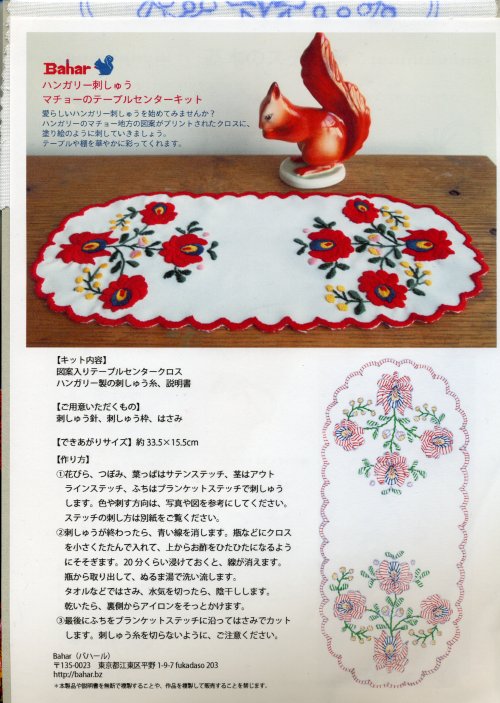 Bahar
ハンガリー刺しゅう
マチョーのテーブルセンターキット
愛らしいハンガリー刺しゅうを始めてみませんか？
ハンガリーのマチョー地方の図案がプリントされたクロスに、
塗り絵のように刺していきましょう。
テーブルや棚を華やかに彩ってくれます。
【キット内容】
図案入りテーブルセンタークロス
ハンガリー製の刺しゅう糸、説明書
【ご用意いただくもの】
刺しゅう針、刺しゅう枠、はさみ
【できあがりサイズ】約 33.5×15.5cm
【作り方】
①花びら、つぼみ、葉っぱはサテンステッチ、茎はアウト
ラインステッチ、ふちはブランケットステッチで刺しゅう
します。色や刺す方向は、写真や図を参考にしてください。
ステッチの刺し方は別紙をご覧ください。
②刺しゅうが終わったら、青い線を消します。瓶などにクロス
を小さくたたんで入れて、上からお酢をひたひたになるよう
にそそぎます。20分くらい浸けておくと、線が消えます。
瓶から取り出して、ぬるま湯で洗い流します。
タオルなどではさみ、水気を切ったら、陰干しします。
乾いたら、裏側からアイロンをそっとかけます。
③最後にふちをブランケットステッチに沿ってはさみでカット
します。刺しゅう糸を切らないように、ご注意ください。
Bahar（バハール）
〒135-0023　東京都江東区平野 1-9-7 fukadaso 203
http://bahar.bz
＊本製品や説明書を無断で複製することや、作品を複製して販売することを禁じます。